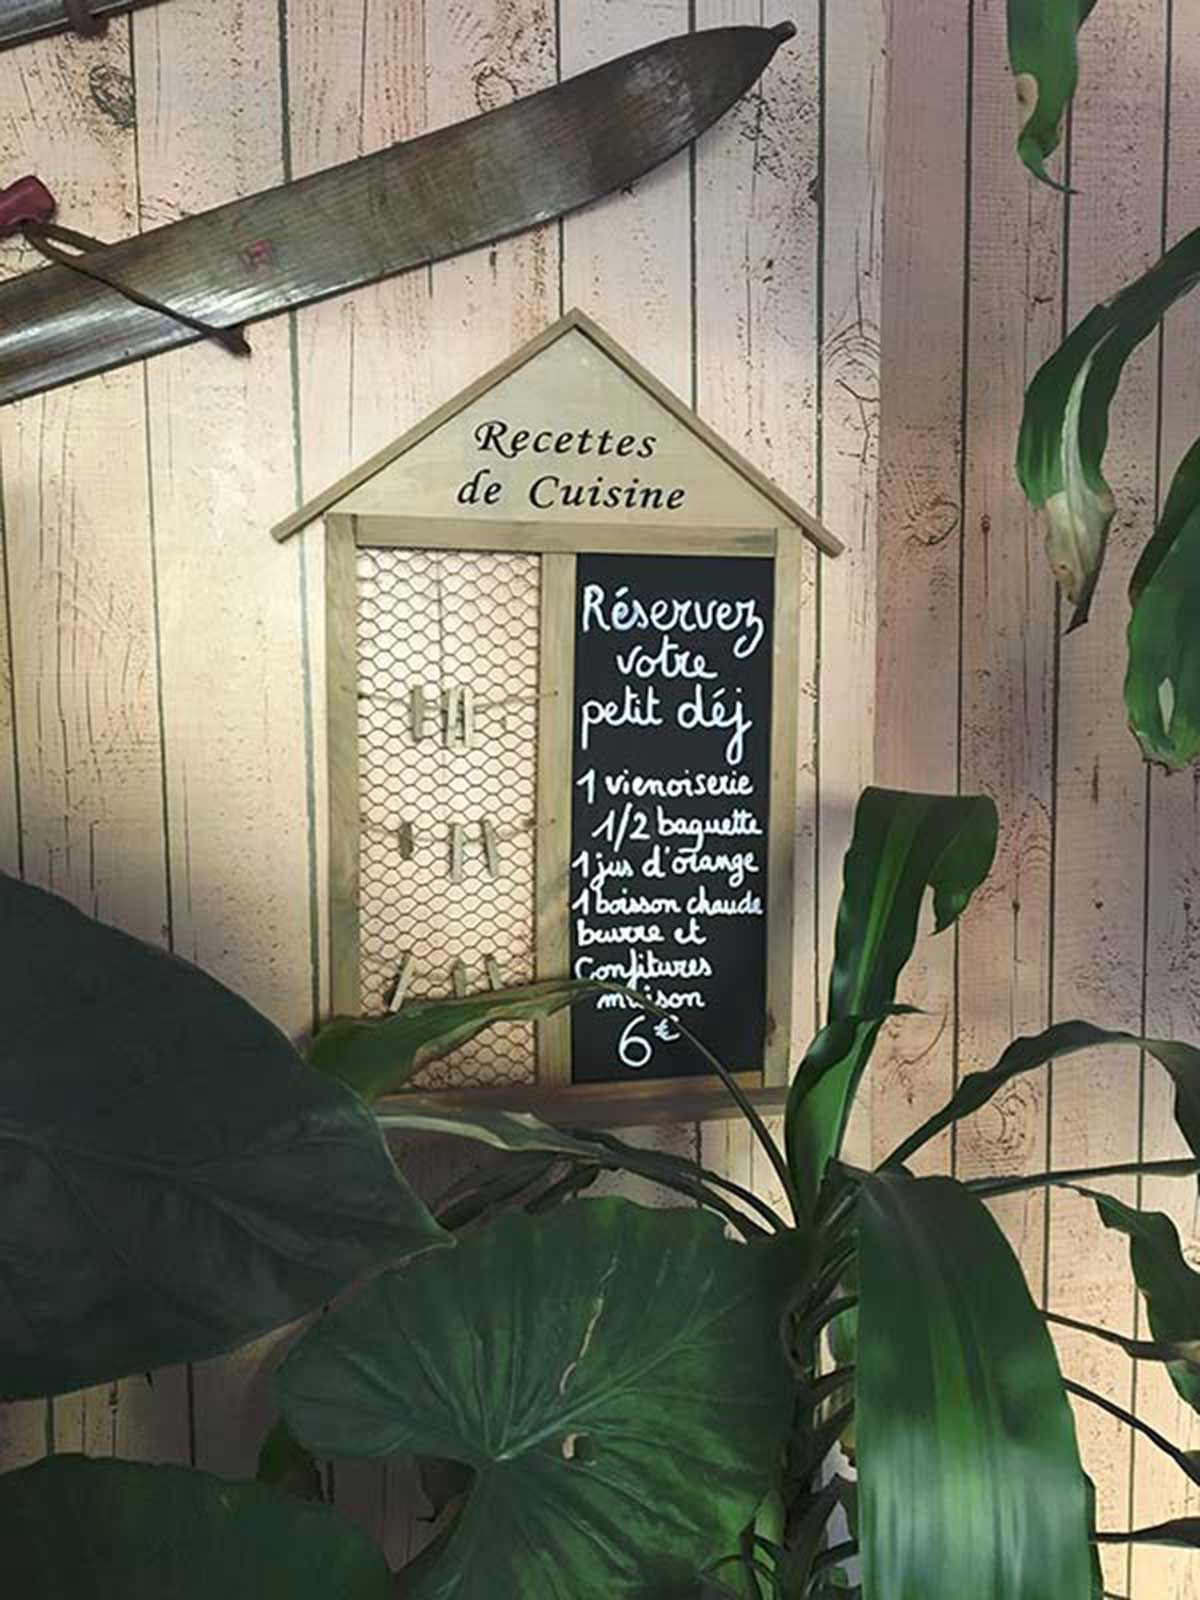 Recettes
de Cuisine
Réservez
votre
petit déj
1 vienoiserie
1/2 baguette
1 jus d'orange
1 boisson chaude
beurre et
Confitures
maison
6€